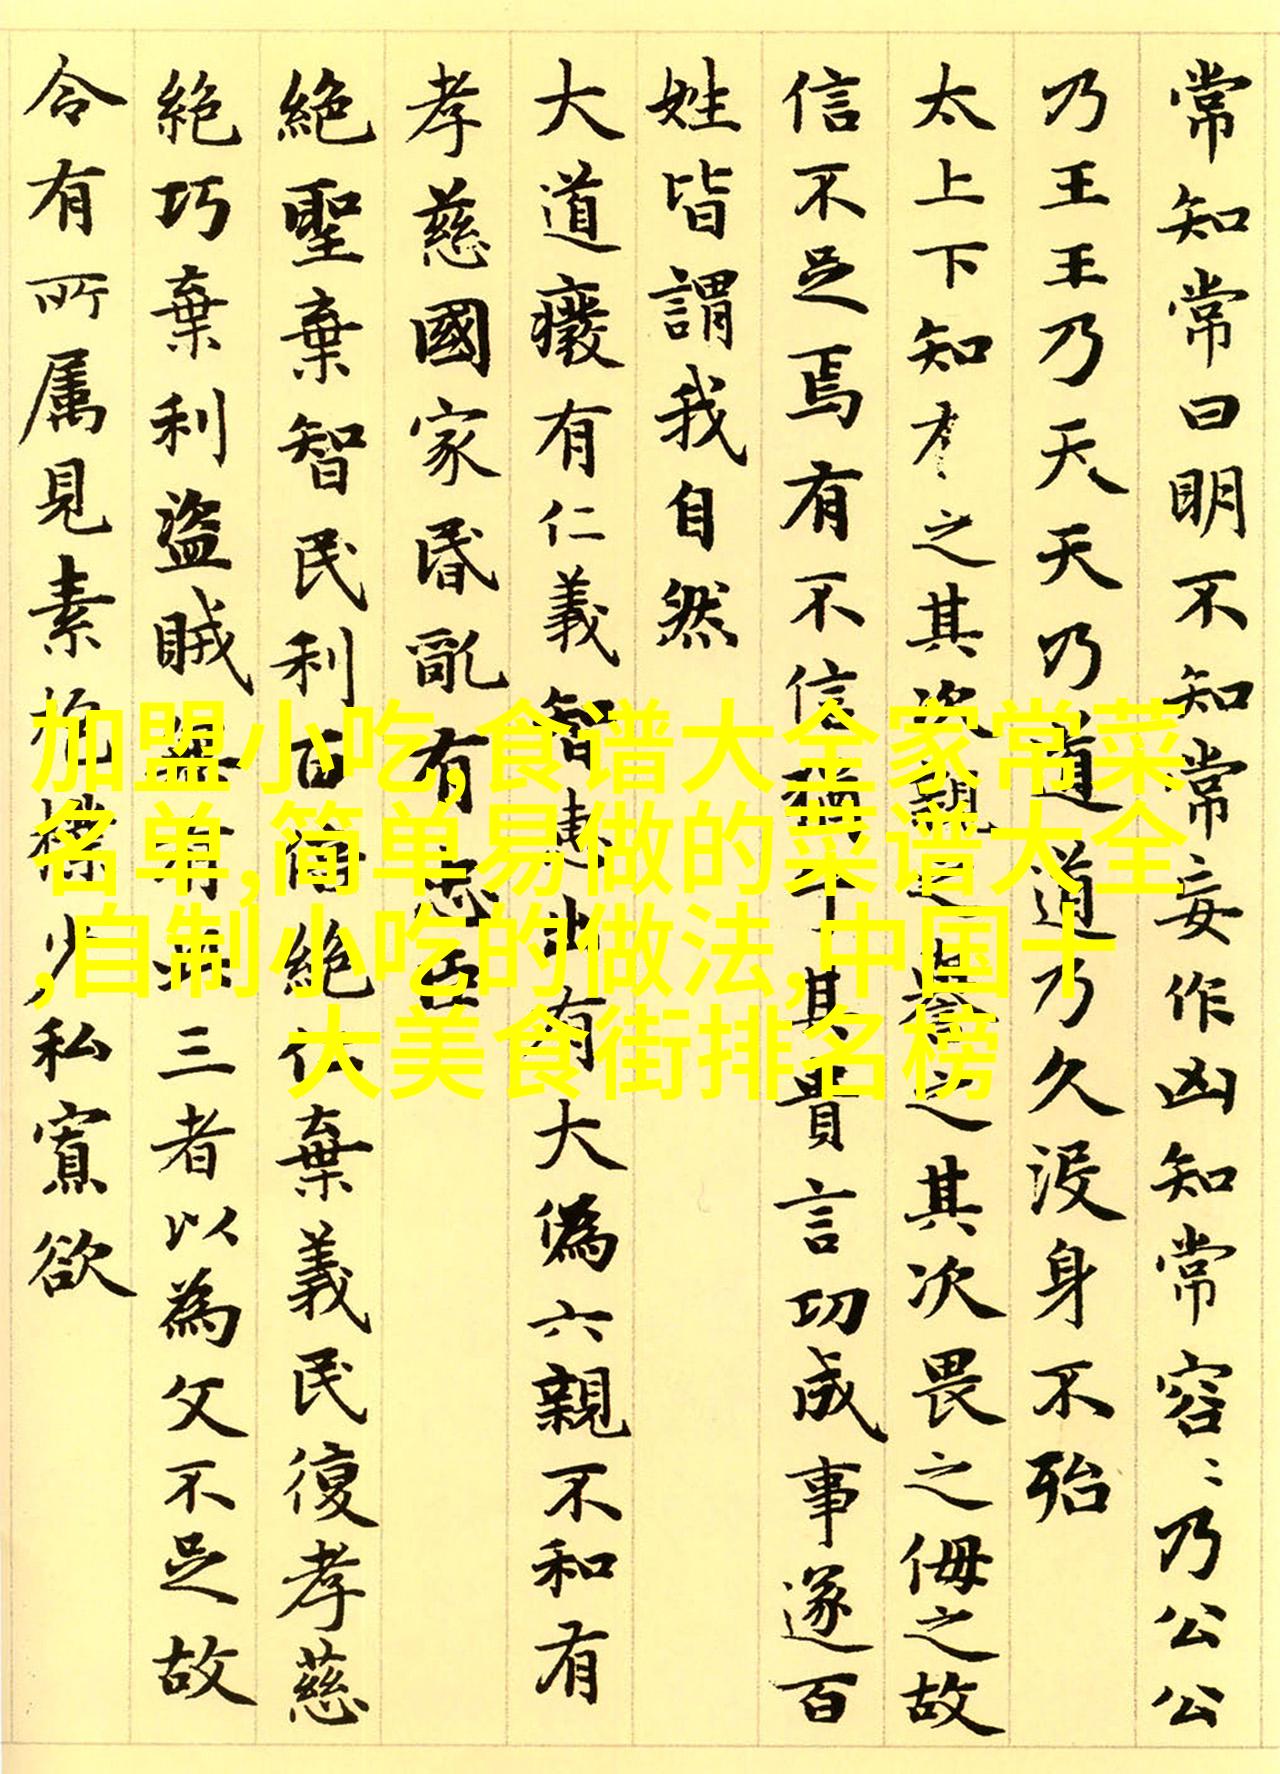 常知常曰明不知知常妄作凶知常容〻乃公公
乃王王乃天天乃道道乃久没身不殆
太上下知有之其次親之譽之其次畏之侮之故
信不足焉有不信猶乎其貴言功成事遂百
姓皆謂我自然
大道癈有仁義智慧出有大偽六親不和有
孝慈國家昬亂有忠臣
絶聖棄智民利百倍絶仁棄義民復孝慈
絶巧棄利盗賊無有此三者以為文不足故
令有所属見素抱樸少私寡欲
加盟小吃,食谱大全家常菜
名单,简单易做的菜谱大全
,自制小吃的做法,中国十
大美食街排名榜